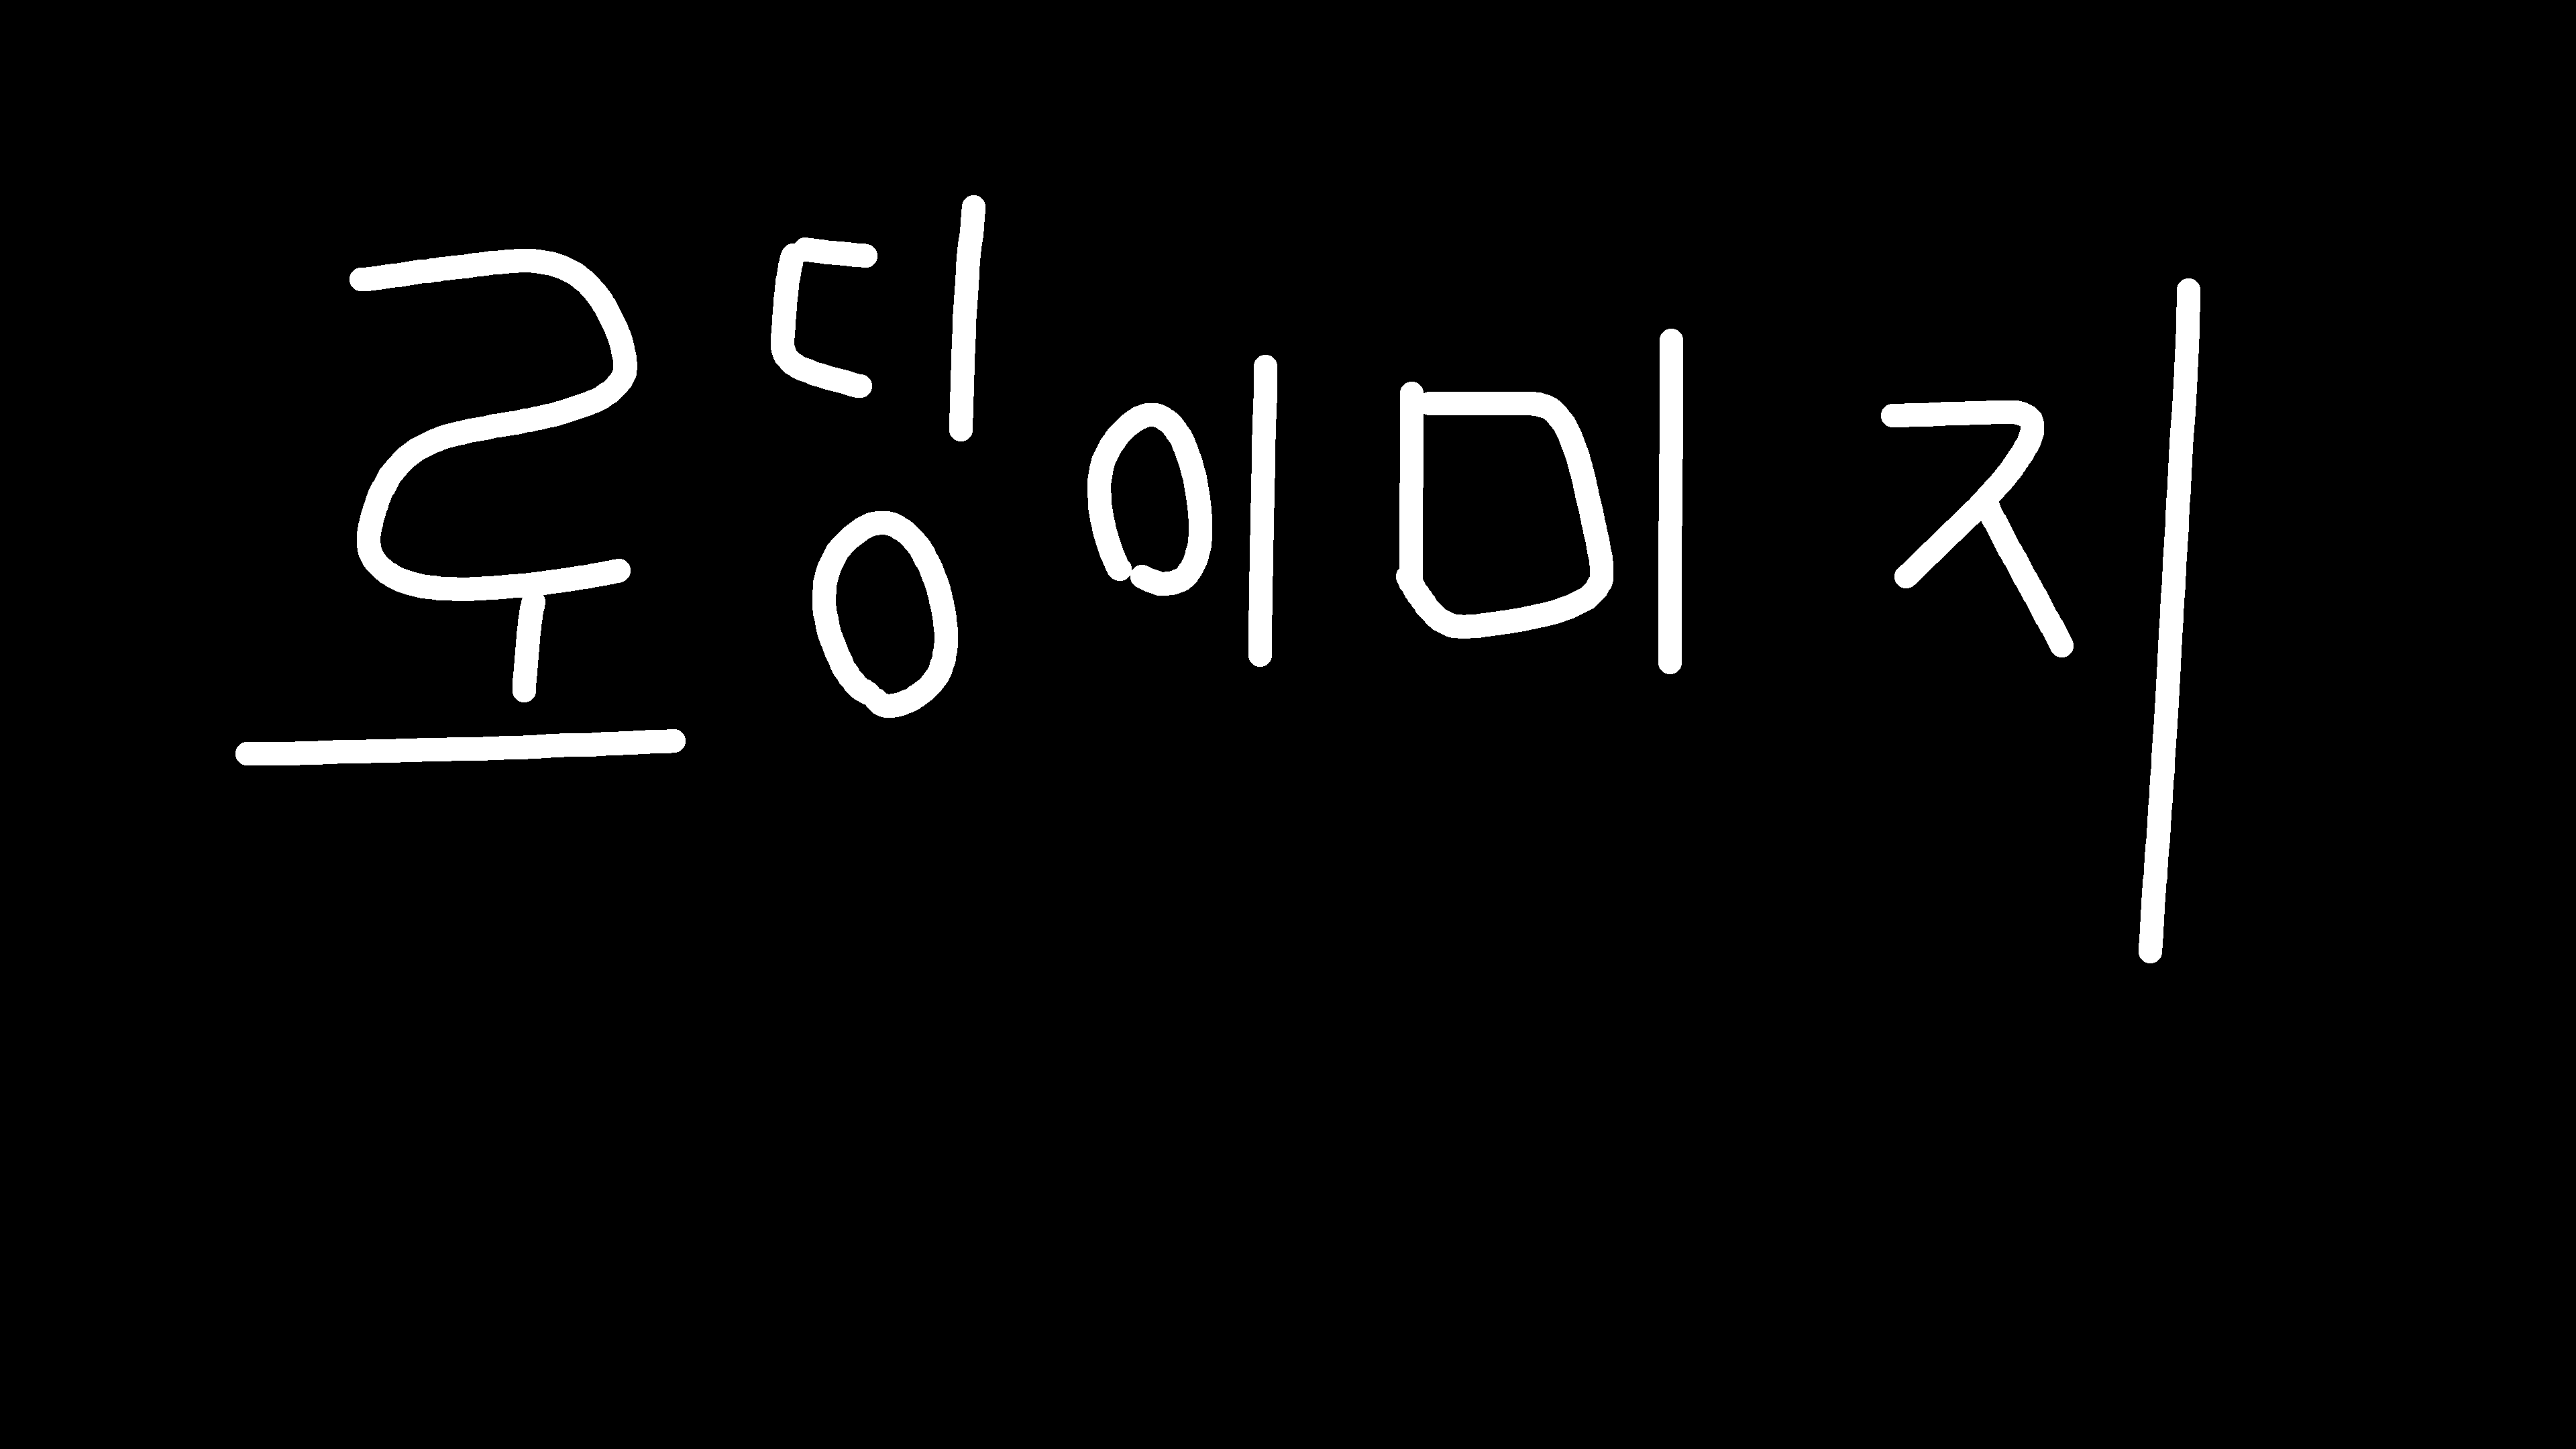 로딩이미지